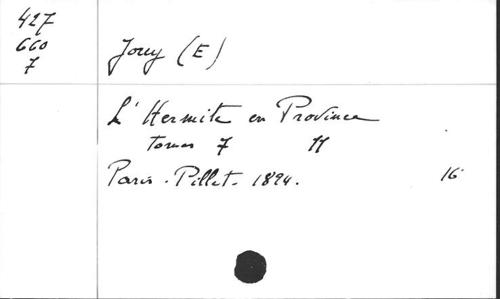 427
660
7
Jouy (E)
L'Hermite en Province
tomes 7 11
Paris - Pillet - 1824.
16